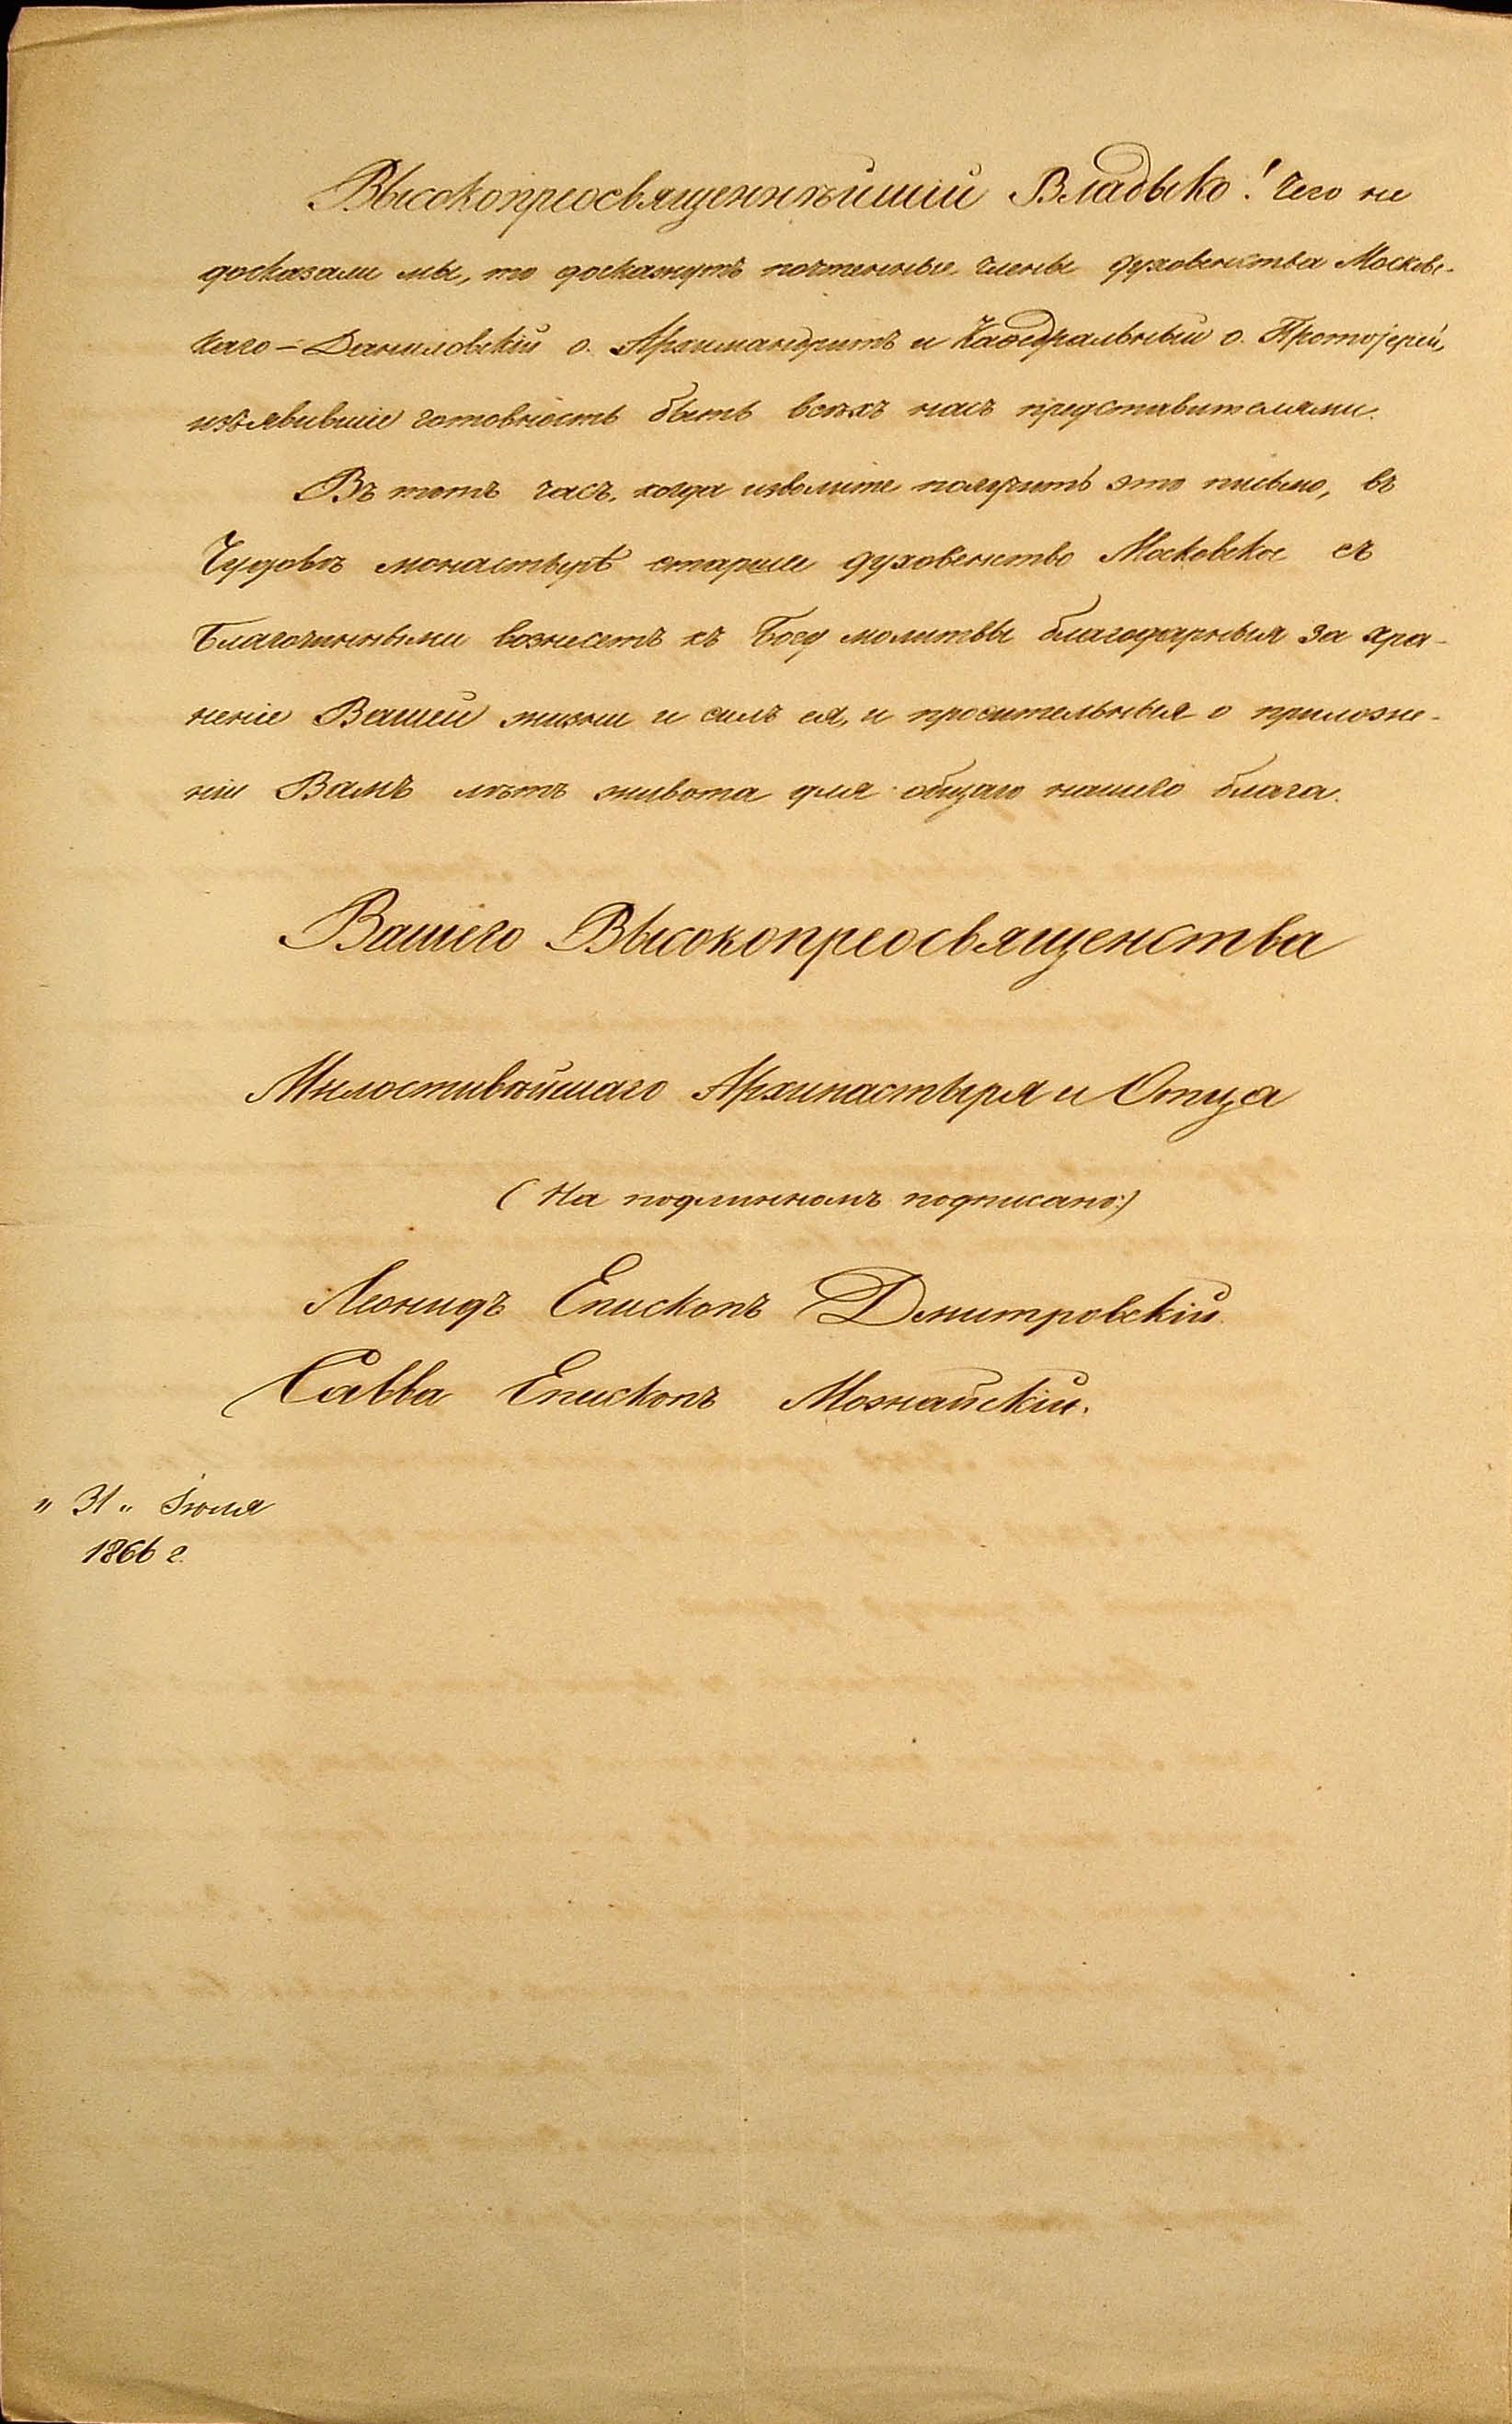 Высокопреосвященнѣйшій Владыко! Чего не
досказали мы, то доскажутъ почтенные члены духовенства Московс-
каго – Даниловскій о. Архимандритъ и Каѳедральный о. Протоіерей,
изъявившіе готовность быть всѣхъ насъ представителями.
Въ тотъ часъ, когда изволите получить это письмо, въ
Чудовѣ монастырѣ старшее духовенство Московское съ
Благочинными вознесетъ къ Богу молитвы благодарныя за хра-
неніе Вашей жизни и силъ ея, и просительныя о приложе-
ніи Вамъ лѣтъ живота для общаго нашего блага.
Вашего Высокопреосвященства
Милостивѣйшаго Архипастыря и Отца
(На подлинномъ подписано:)
Леонидъ Епископъ Дмитровскій.
Савва Епископъ Можайскій.
„ 31 „ Іюля
1866 г.